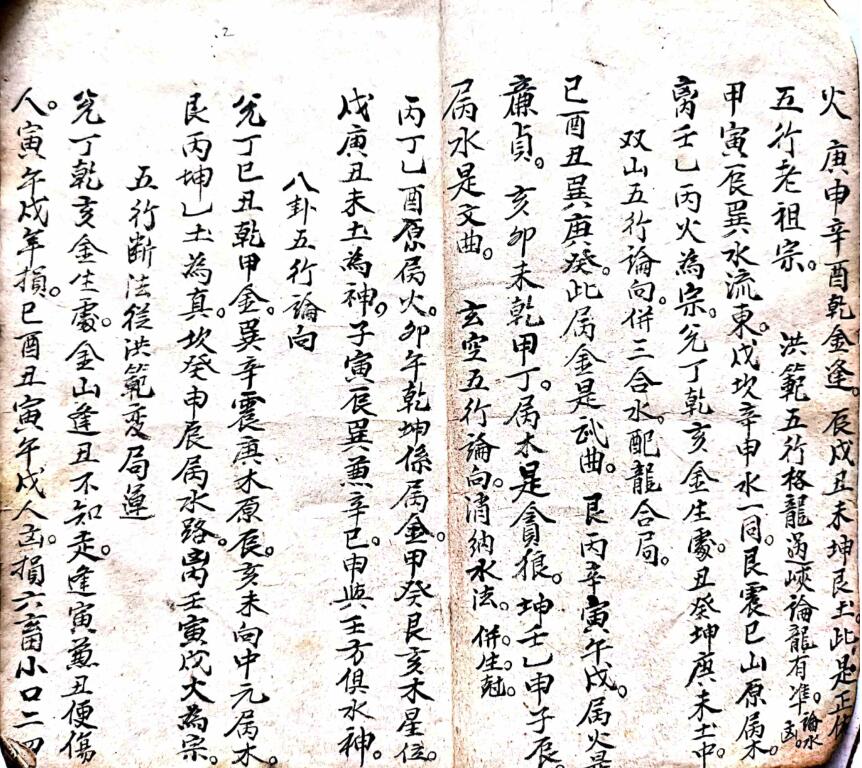 火庚申辛酉乾金逢。辰戌丑未坤艮土。此是正体
五行老祖宗。 洪範五行格龍過峽論龍有準。論水凶。
甲寅辰巽水流東。戊坎辛申水一同。艮震巳山原属木。
离壬乙丙火為宗。兌丁乾亥金生處。丑癸坤庚未土中
双山五行論向。併三合水。配龍合局。
巳酉丑巽庚癸。此属金是武曲。艮丙辛寅午戌。属火是
亷貞。亥卯未乾甲丁。属木是貪狼。坤壬乙申子辰。
属水是文曲。 玄空五行論向。消納水法。併生尅。
丙丁乙酉原属火。卯午乾坤係属金。甲癸艮亥木星位。
戌庚丑未土為神。子寅辰巽兼辛巳。申與壬方俱水神。
八卦五行論向
兌丁巳丑乾甲金。巽辛震庚木原辰。亥未向中元属木。
艮丙坤乙土為真。坎癸申辰属水路。离壬寅戌火為宗。
五行断法從洪範変局運
兌丁乾亥金生處。金山逢丑不知走。逢寅兼丑便傷
人。寅午戌年損。巳酉丑寅午戌人凶。損六畜小口二四